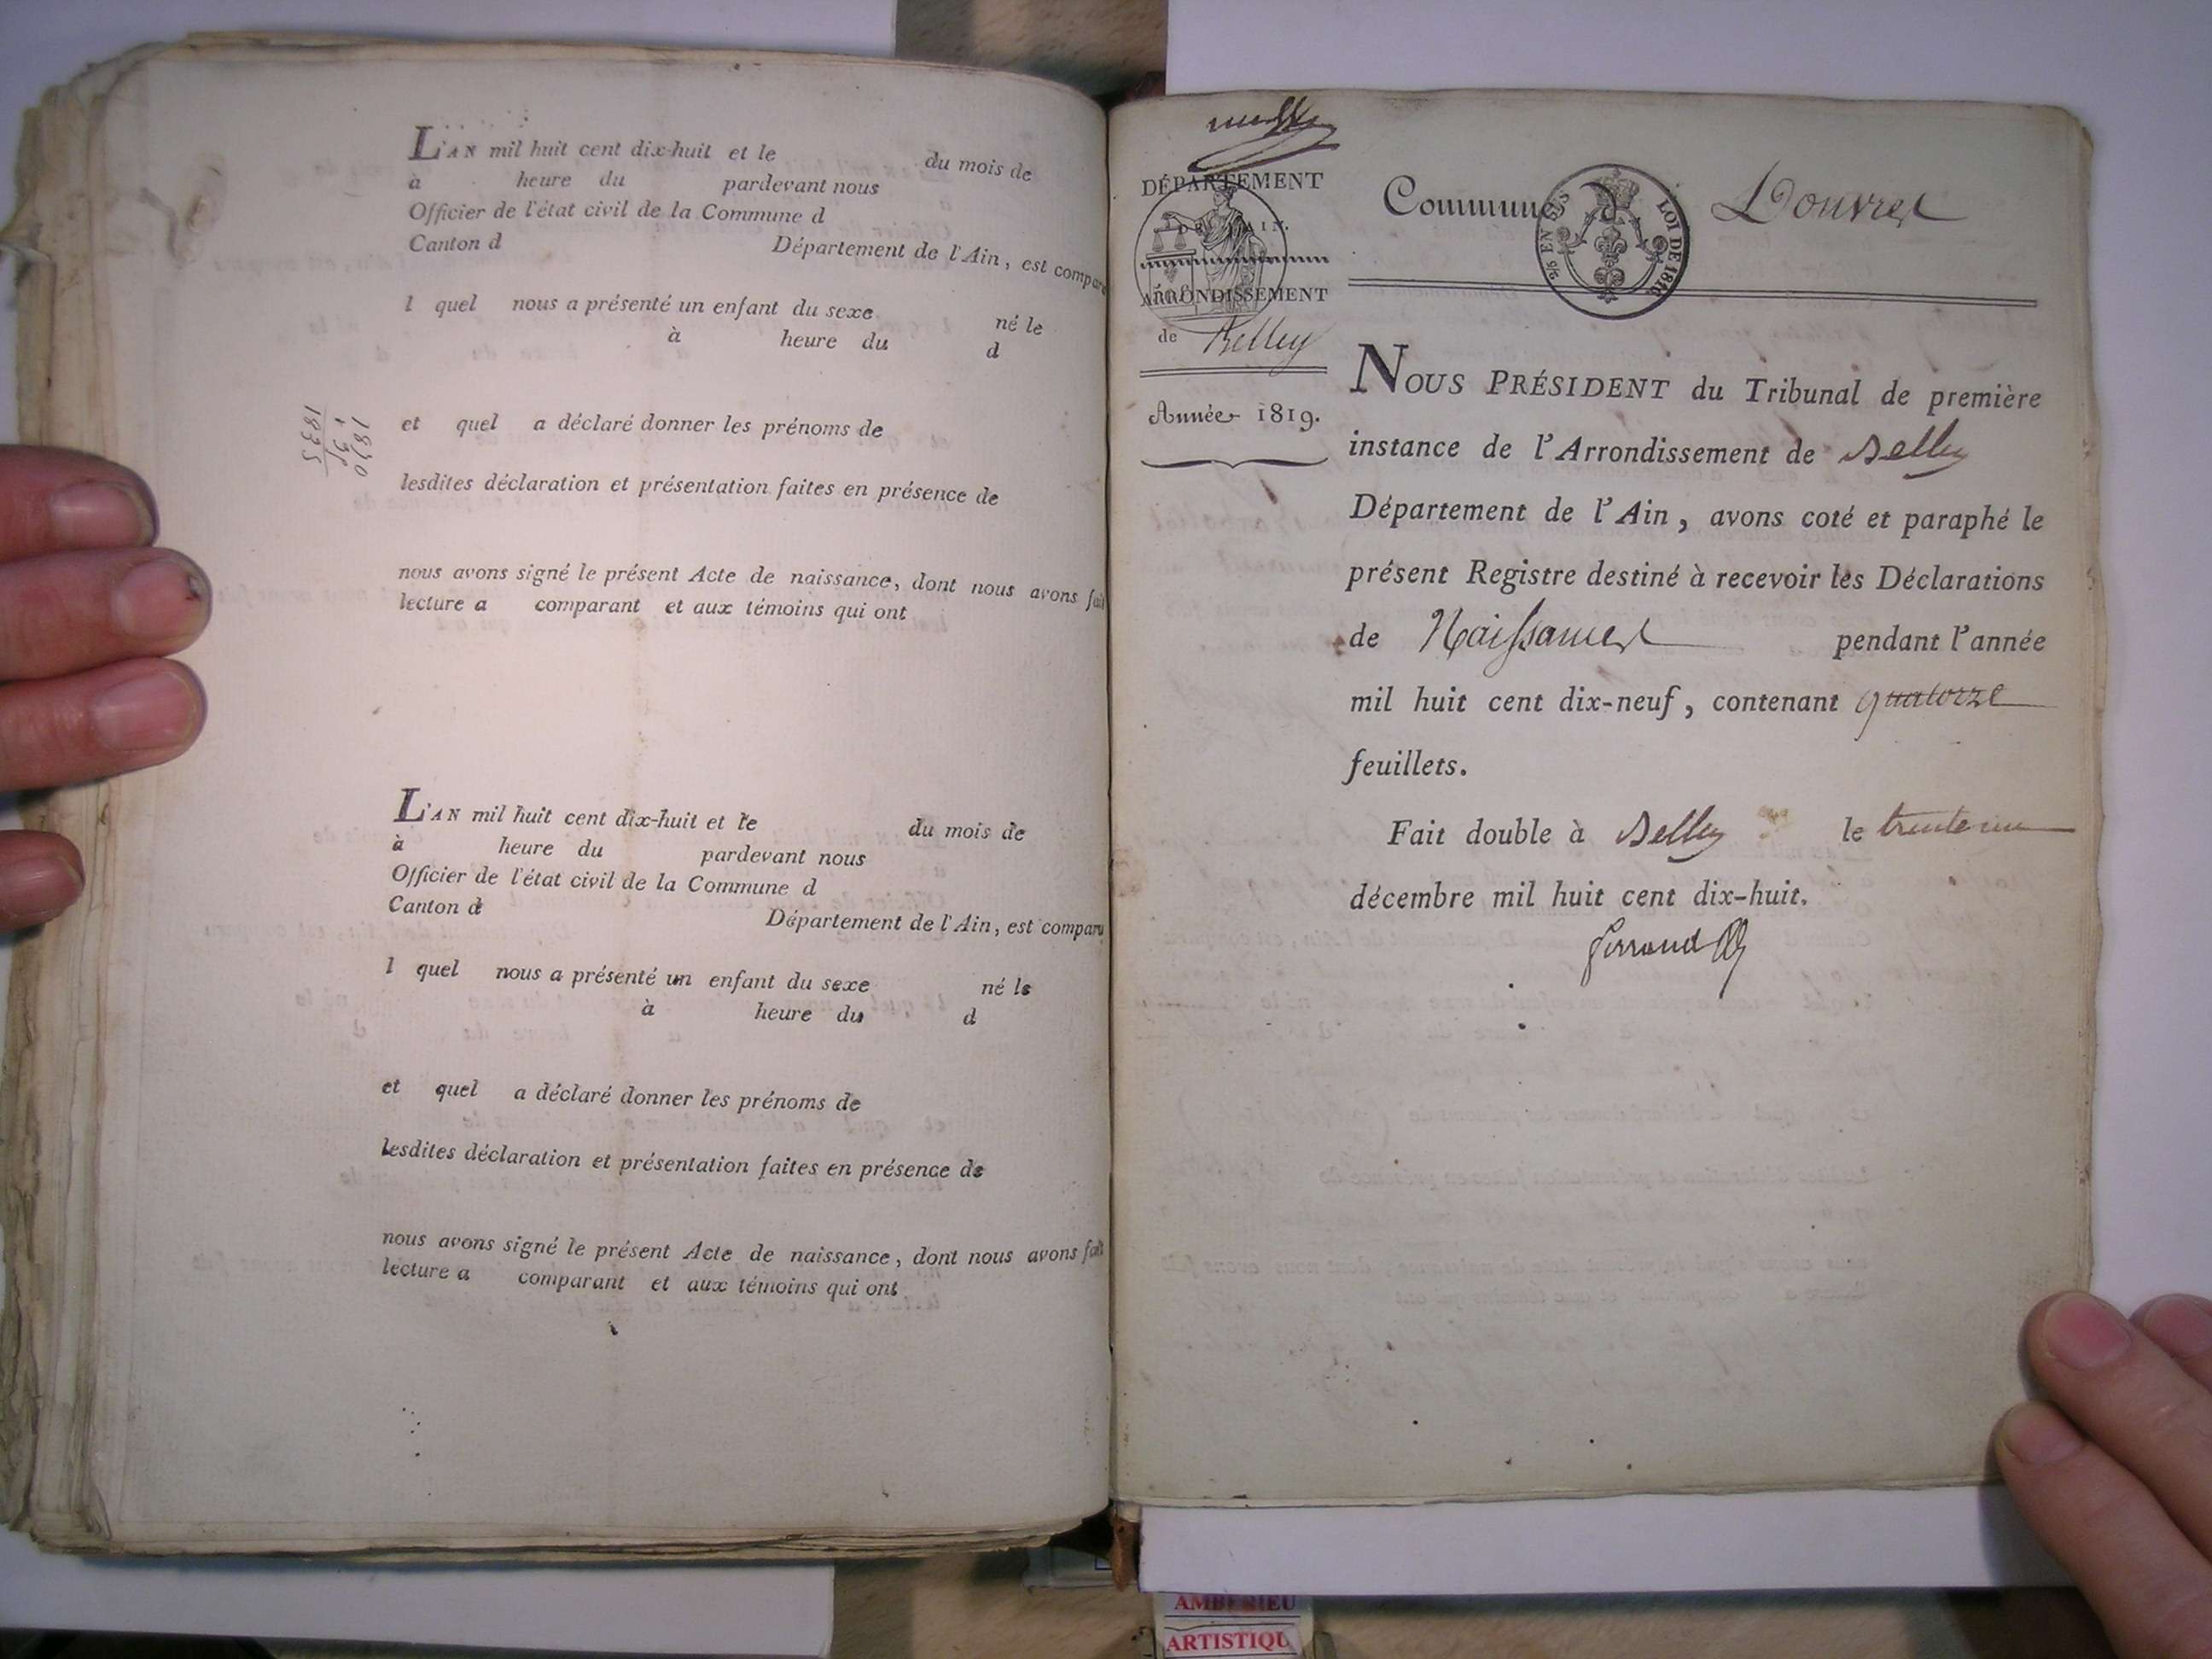 L'AN mil huit cent dix-huit et le du mois de
à heure du pardevant nous
Officier de l'état civil de la Commune d
Canton d Département de l'Ain, est compara
l quel nous a présenté un enfant du sexe né le
à heure du d
et quel a déclaré donner les prénoms de
lesdites déclaration et présentation faites en présence de
nous avons signé le présent Acte de naissance, dont nous avons fait
lecture a comparant et aux témoins qui ont
1835
L'AN mil huit cent dix-huit et le du mois de
à heure du pardevant nous
Officier de l'état civil de la Commune d
Canton d Département de l'Ain, est comparu
l quel nous a présenté un enfant du sexe né le
à heure du d
et quel a déclaré donner les prénoms de
lesdites déclaration et présentation faites en présence de
nous avons signé le présent Acte de naissance, dont nous avons fait
lecture a comparant et aux témoins qui ont
DÉPARTEMENT
DE L'AIN.
ARRONDISSEMENT
de Belley
Année 1819.
Commune d Douvres
EN SUS LOI DE 1816
NOUS PRÉSIDENT du Tribunal de première
instance de l'Arrondissement de Belley
Département de l'Ain, avons coté et paraphé le
présent Registre destiné à recevoir les Déclarations
de Naissances pendant l'année
mil huit cent dix-neuf, contenant quatorze
feuillets.
Fait double à Belley le trente un
décembre mil huit cent dix-huit.
AMBERIEU
ARTISTIQU